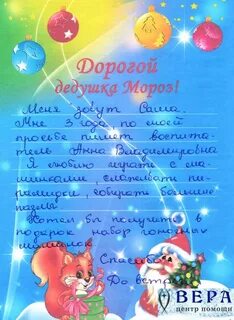 Дорогой
дедушка Мороз!
Меня зовут Саша.
Мне 3 года, по моей
просьбе пишет воспита-
тель Анна Владимировна
Я люблю играть с ма-
шинками, складывать пи-
рамидки, собирать большие
пазлы
Хотел бы получить в
подарок набор гоночных
машинок.
Спасибо!
До встречи
ВЕРА
центр помощи